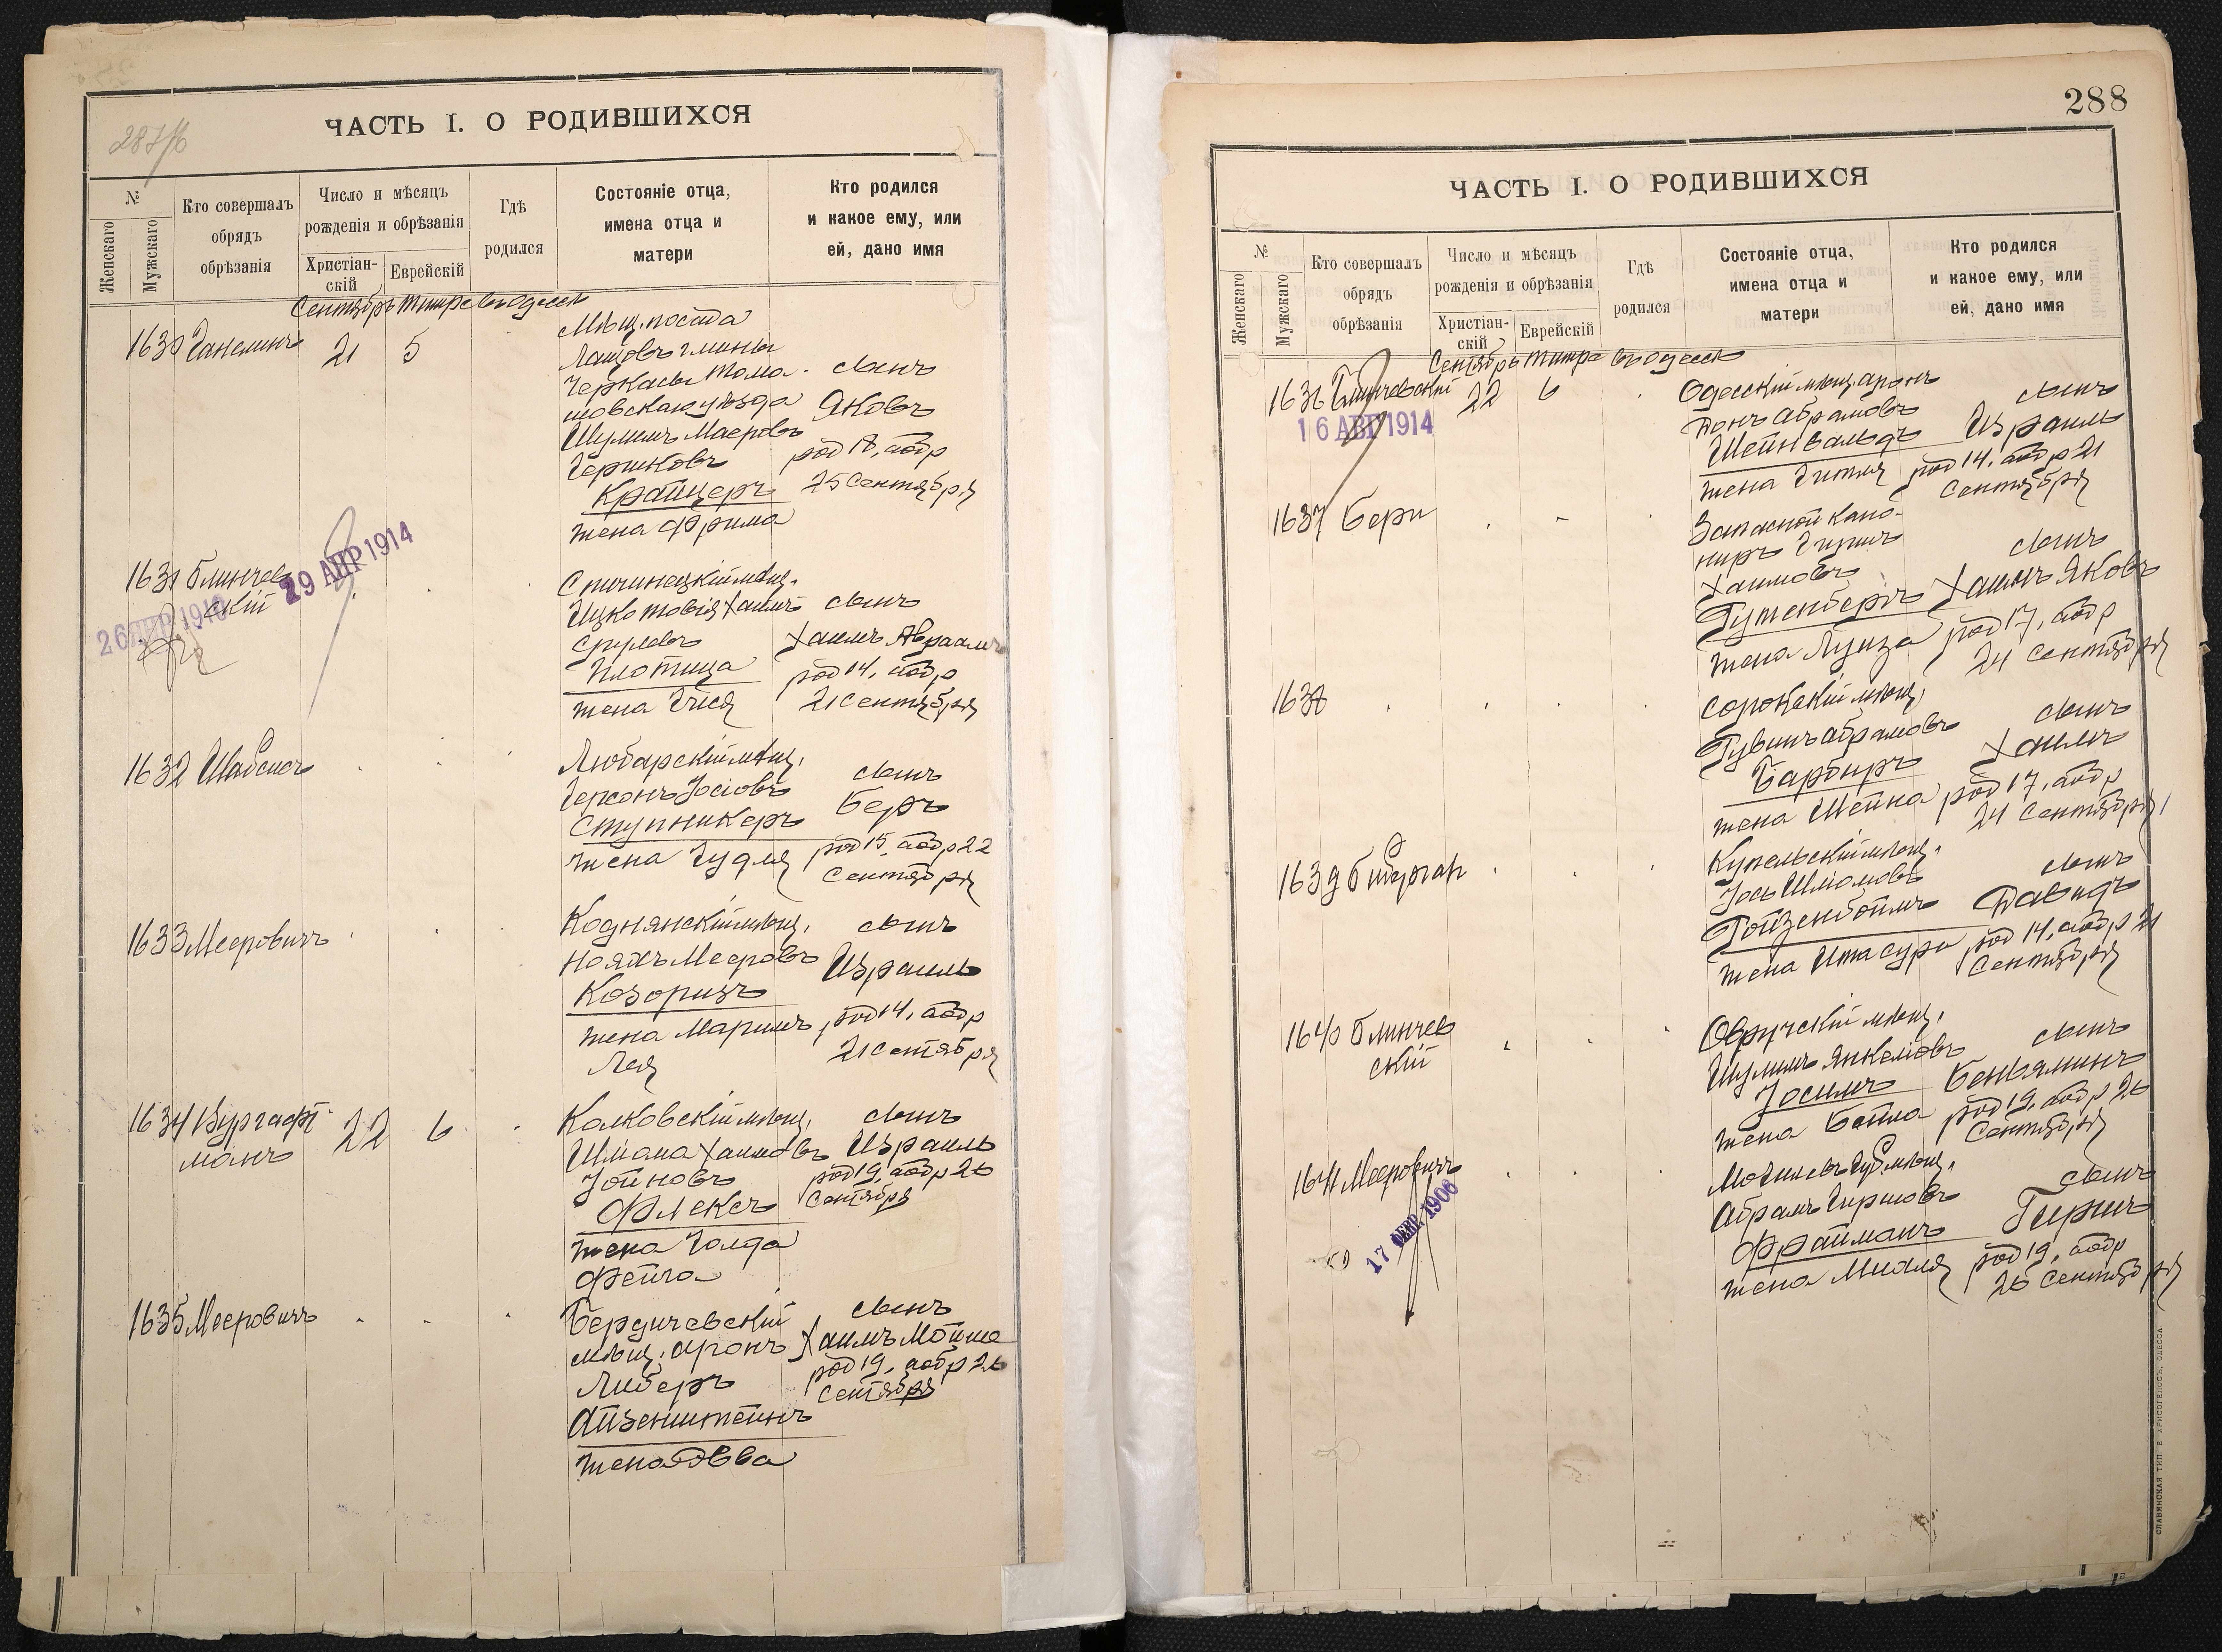 287/б
ЧАСТЬ I. О РОДИВШИХСЯ
№
Женскаго
Мужскаго
Кто совершалъ
обрядъ
обрѣзанія
Число и мѣсяцъ
рожденія и обрѣзанія
Христіан-
скій
Еврейскій
Гдѣ
родился
Состояніе отца,
имена отца и
матери
Кто родился
и какое ему, или
ей, дано имя
Сентябрь Тишре въ Одессѣ
1630
21 5
Мѣщ. посада
Лащовъ гмины
Черкасы Тома-
шовскаго уѣзда
Шулимъ Маеровъ
Гершковъ
Крайцеръ
жена Фрима
сынъ
Яковъ
род 18, абдр
25 Сентября
1631 Блинчев
скій
26 АПР 1910
29 АПР 1914
мѣщ.
Ицко Товія Хаимъ
Срулевъ
Плотица
жена Гися
сынъ
Хаимъ Авраамъ
род 14, абдр
21 Сентября
1632 Шабсисъ
Любарскій мѣщ.
Герсонъ Іосіовъ
Ступникеръ
жена Гудля
сынъ
Беръ
род 15, абдр 22
Сентября
1633 Мееровичъ
Коднянскій мѣщ.
Нояхъ Мееровъ
Козоризъ
жена Маримъ
Лея
сынъ
Израиль
род 14, абдр
21 Сентября
1634 Вургафт
манъ
22 6
Колковскій мѣщ.
Шмана Хаимовъ
Іойновъ
Флексъ
жена Голда
Фейга
сынъ
Израиль
род 19, абдр 26
Сентября
1635 Мееровичъ
Бердичевскій
мѣщ. Аронъ
Либеръ
Айзенштейнъ
жена Эвва
сынъ
Хаимъ Мойше
род 19, абдр 26
Сентября
288
ЧАСТЬ I. О РОДИВШИХСЯ
№
Женскаго
Мужскаго
Кто совершалъ
обрядъ
обрѣзанія
Число и мѣсяцъ
рожденія и обрѣзанія
Христіан-
скій
Еврейскій
Гдѣ
родился
Состояніе отца,
имена отца и
матери
Кто родился
и какое ему, или
ей, дано имя
Сентябрь Тишре въ Одессѣ
1636 Блинчевскій
22 6
16 АВГ 1914
Одесскій мѣщ. Аронъ
Абрамовъ
Шейнвальдъ
жена Гитля
сынъ
Израиль
род 14, абдр 21
Сентября
1637 Бери
Запасной кано-
ниръ Гиршъ
Хаимовъ
Гутенбергъ
жена Луиза
сынъ
Хаимъ Яковъ
род 17, абдр
24 Сентября
1638
Сорокскій мѣщ.
Рувинъ Абрамовъ
Барбиръ
жена Шейна
сынъ
Хаимъ
род 17, абдр
24 Сентября
1639
Купельскій мѣщ.
Іось Шліомовъ
Ройзенбоймъ
жена Ита Сура
сынъ
Давидъ
род 14, абдр 21
Сентября
1640 Блинчев
скій
Овручскій мѣщ.
Шулимъ Янкеліовъ
Іосимъ
жена Бейла
сынъ
Беньяминъ
род 19, абдр 26
Сентября
1641 Мееровичъ
17 ФЕВР. 1906
Могилевъ губ. мѣщ.
Абрамъ Гиршовъ
Фрайманъ
жена Миаля
сынъ
Гершъ
род 19, абдр
26 Сентября
СЛАВЯНСКАЯ ТИП. Е. ХРИСОГЕЛОСЪ, ОДЕССА